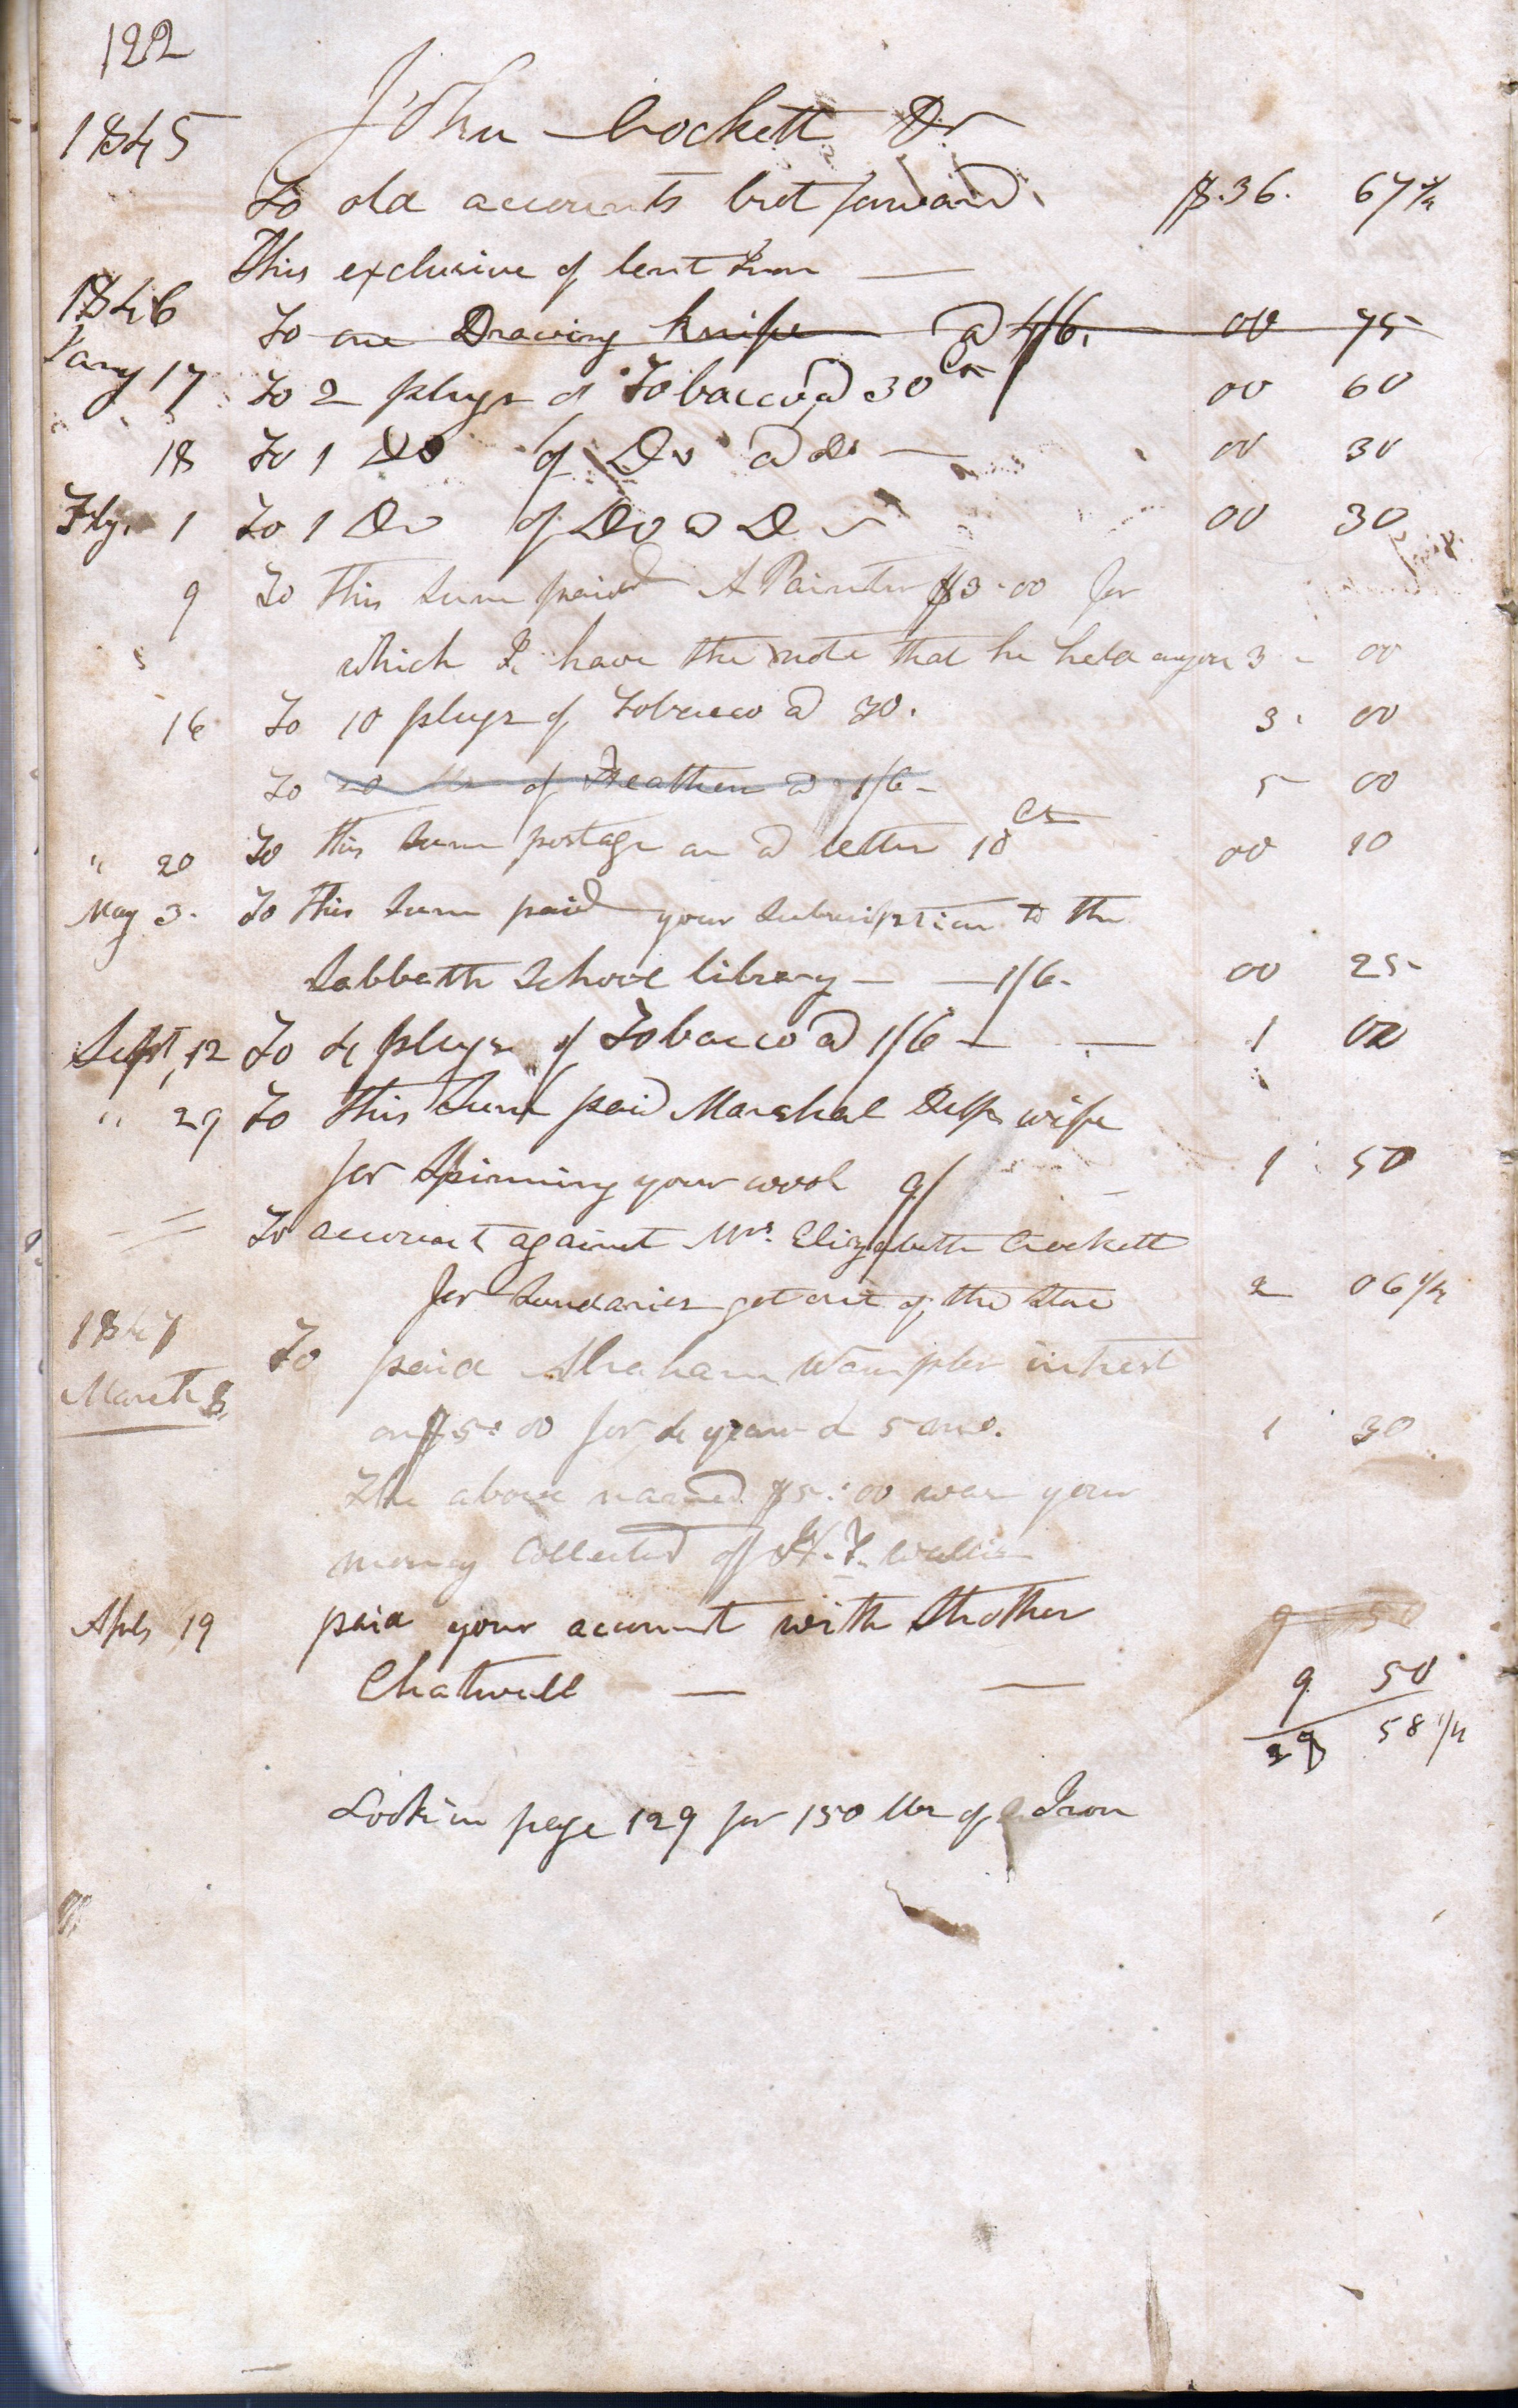 122
1845 John Crockett Dr
To old accounts brot forward $.36. 67 1/2
This exclusive of lent Iron —
1846
To one Drawing knife @ 4/6. 00 75
Jany 17 To 2 plugs of Tobacco @ 30 Cts 00 60
18 To 1 Do of Do @ do — 00 30
Feby. 1 To 1 Do of Do @ Do 00 30
9 To this sum paid A Painter $3.00 for
which I have the note that he held on you 3 - 00
16 To 10 plugs of Tobacco @ 30. 3. 00
To of Feathers @ 1/6 - 5 00
" 20 To this sum postage on a letter 10 cts 00 10
May 3. To this sum paid your subscription to the
Sabbath School library — — 1/6. 00 25
Sept, 12 To 4 plugs of Tobacco @ 1/6 — — 1 00
" 29 To this Sum paid Marshal Delps wife
for Spinning your wool 9/ - 1 50
To account against Mrs. Elizabeth Crockett
for Sundaries got out of the Store 2 06 1/4
1847
March 8, To paid Abraham Wampler intrest
on $5:00 for 4 years & 5 mo. 1 30
The above named $5:00 was your
money Collected of
Aprl 19 paid your account with Strother
Chatwell — — 9 50
58 1/4
Look in page 129 for 150 lbs of Iron